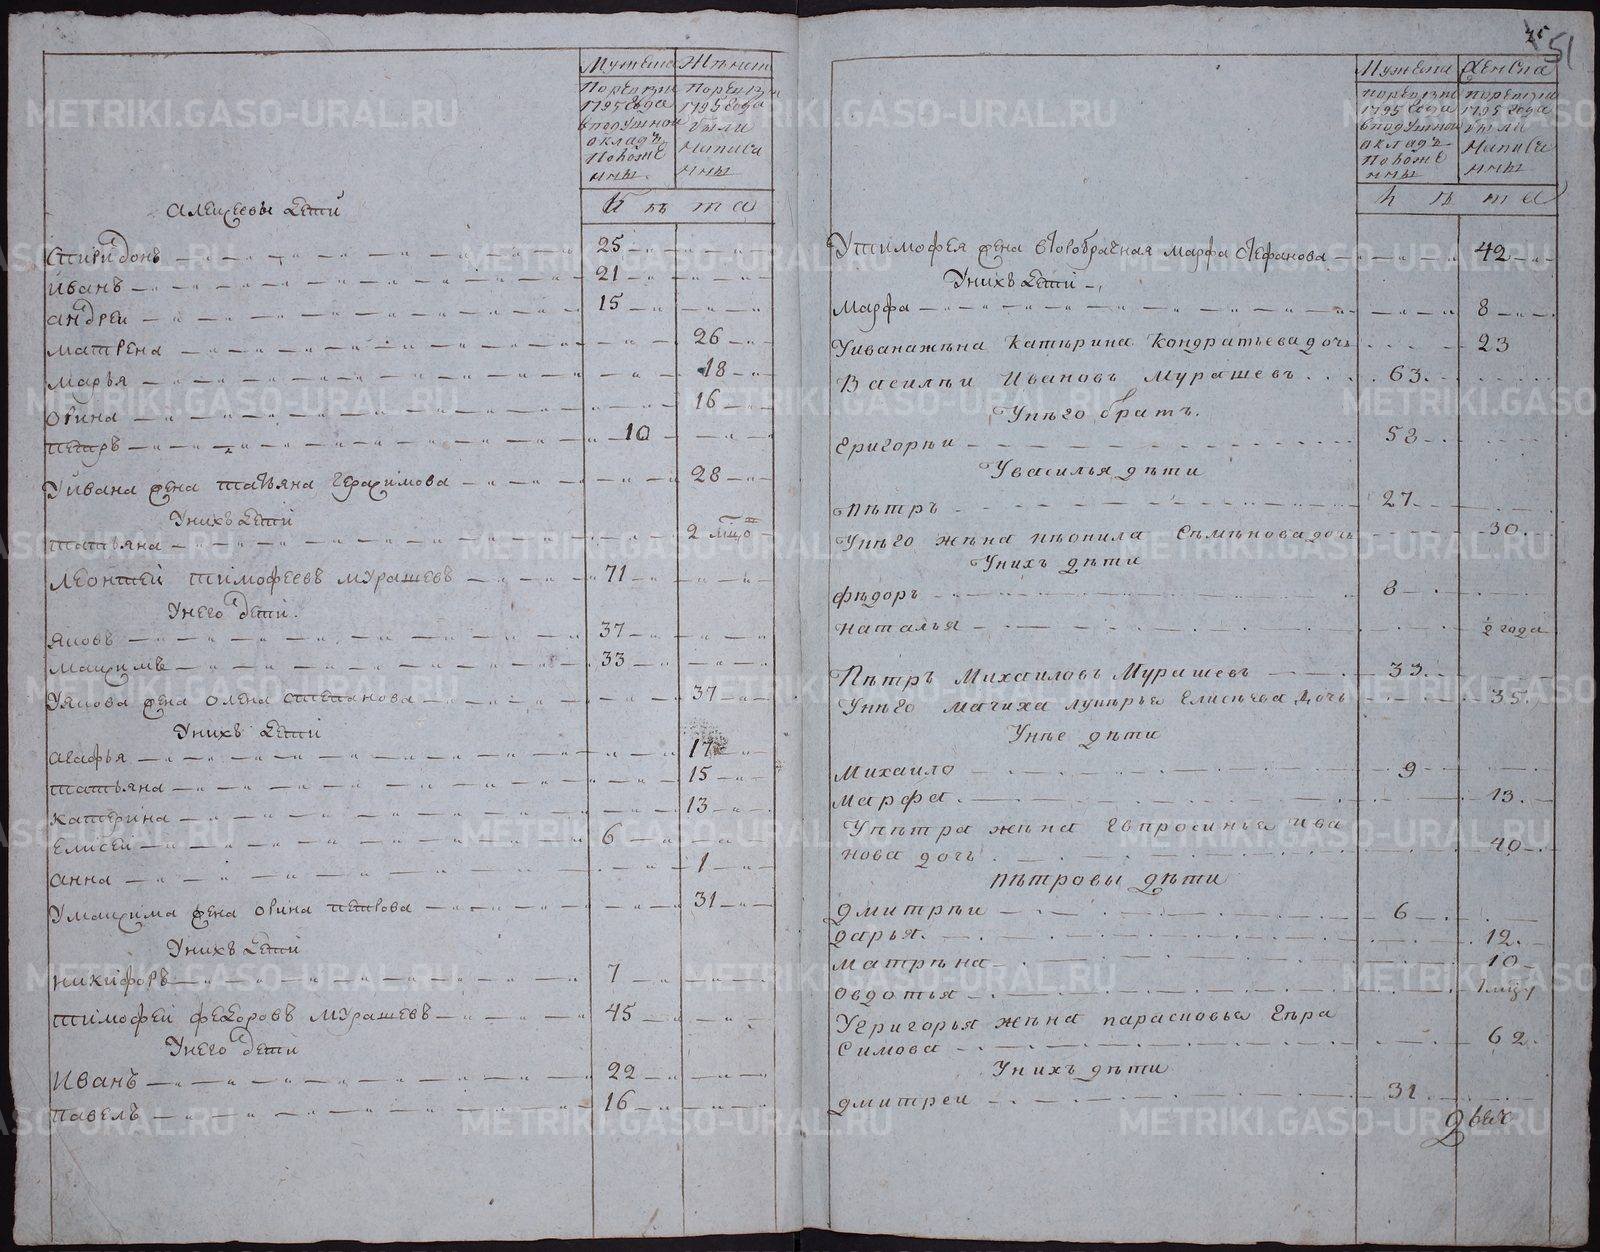 Мужеска Женска
По ревизи 1795 года в подушном окладѣ положены
По ревизи 1795 года были написаны
Лѣта
Алексеевы дети
Спиридонъ 25
Иванъ 21
Андреи 15
Матрена 26
Марья 18
Орина 16
Петръ 10
У Ивана жена Татьяна Герасимова 28
У нихъ дети
Татьяна 2
Леонтей Тимофеевъ Мурашевъ 71
У него дети
Яковъ 37
Максимъ 33
У Якова жена Олена Степанова 37
У нихъ дети
Агафья 17
Татьяна 15
Катерина 13
Елисей 6
Анна 1
У Максима жена Орина Петрова 31
У нихъ дети
Никифоръ 7
Тимофей Федоровъ Мурашевъ 45
У него дети
Иванъ 22
Павелъ 16
51
Мужеска Женска
По ревизи 1795 года в подушном окладѣ положены
По ревизи 1795 года были написаны
Лѣта
У Тимофея жена второбрачная Марфа 42
У нихъ дети
Марфа 8
У Ивана жѣна Катѣрина Кондратьева дочь 23
Василѣи Ивановъ Мурашевъ 63
У нѣго братъ
Григорѣи 58
У Василья дѣти
Пѣтръ 27
У нѣго жѣна Сѣмѣнова дочь 30
У нихъ дѣти
Фѣдоръ 8
Наталья ½ года
Пѣтръ Михаиловъ Мурашевъ 33
У нѣго мачиха Лукѣрья Елисѣева дочь 35
У нѣе дѣти
Михаило 9
Марфа 13
У Пѣтра жѣна Евпросинья Ива
нова дочь 40
Пѣтровы дѣти
Дмитрѣи 6
Дарья 12
Матрѣна 10
Овдотья
У Григорья жѣна Парасковья Гѣра
симова 62
У нихъ дѣти
Дмитреи 31